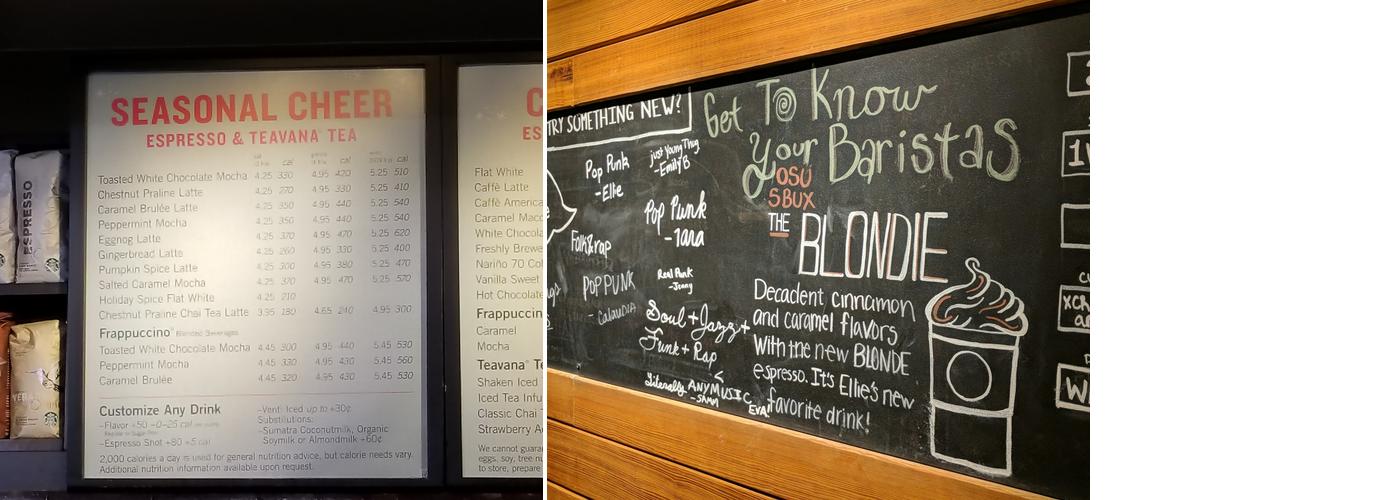 SEASONAL CHEER
ESPRESSO & TEAVANA TEA
cal cal cal
Toasted White Chocolate Mocha 4.25 330 4.95 420 5.25 510
Chestnut Praline Latte 4.25 270 4.95 330 5.25 410
Caramel Brulée Latte 4.25 350 4.95 440 5.25 540
Peppermint Mocha 4.25 350 4.95 440 5.25 540
Eggnog Latte 4.25 370 4.95 470 5.25 620
Gingerbread Latte 4.25 260 4.95 330 5.25 400
Pumpkin Spice Latte 4.25 300 4.95 380 5.25 470
Salted Caramel Mocha 4.25 370 4.95 470 5.25 570
Holiday Spice Flat White 4.25 210
Chestnut Praline Chai Tea Latte 3.95 180 4.65 240 4.95 300
Frappuccino® Blended Beverages
Toasted White Chocolate Mocha 4.45 300 4.95 440 5.45 530
Peppermint Mocha 4.45 330 4.95 430 5.45 560
Caramel Brulée 4.45 320 4.95 430 5.45 530
Customize Any Drink
–Flavor +50 –0–25 cal
–Espresso Shot +80 +5 cal
–Venti Iced up to +30¢
Substitutions:
–Sumatra Coconutmilk, Organic
Soymilk or Almondmilk +60¢
2,000 calories a day is used for general nutrition advice, but calorie needs vary.
Additional nutrition information available upon request.
Flat White
Caffè Latte
Caffè America
Caramel Macc
White Chocola
Freshly Brewe
Nariño 70 Col
Vanilla Sweet
Hot Chocolate
Frappuccin
Caramel
Mocha
Teavana® Te
Shaken Iced
Iced Tea Infu
Classic Chai T
Strawberry A
We cannot guara
eggs, soy, tree nu
to store, prepare
ESPRESSO
TRY SOMETHING NEW?
Get To Know
Your Baristas
OSU
SBUX
THE BLONDIE
Decadent cinnamon
and caramel flavors
With the new BLONDE
espresso. It's Ellie's new
favorite drink!
Pop Punk
-Ellie
just Young Thug
-Emily B
Pop Punk
-Tana
Folk&rap
Real Punk
-Jenny
POP PUNK
- Calaudia
Soul + Jazz +
Funk + Rap
Literally ANY MUSIC
-SAMM
Eva!